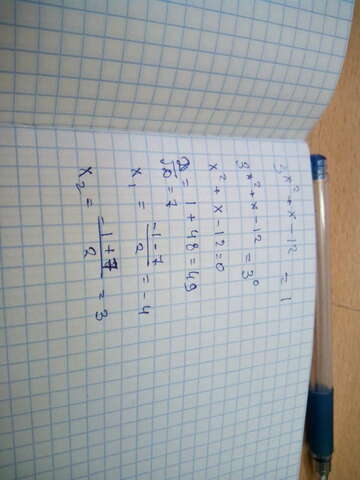 3^{x^2+x-12} = 1
3^{x^2+x-12} = 3^0
x^2+x-12=0
D = 1+48=49
√D = 7
x_1 = \frac{-1-7}{2} = -4
x_2 = \frac{-1+7}{2} = 3